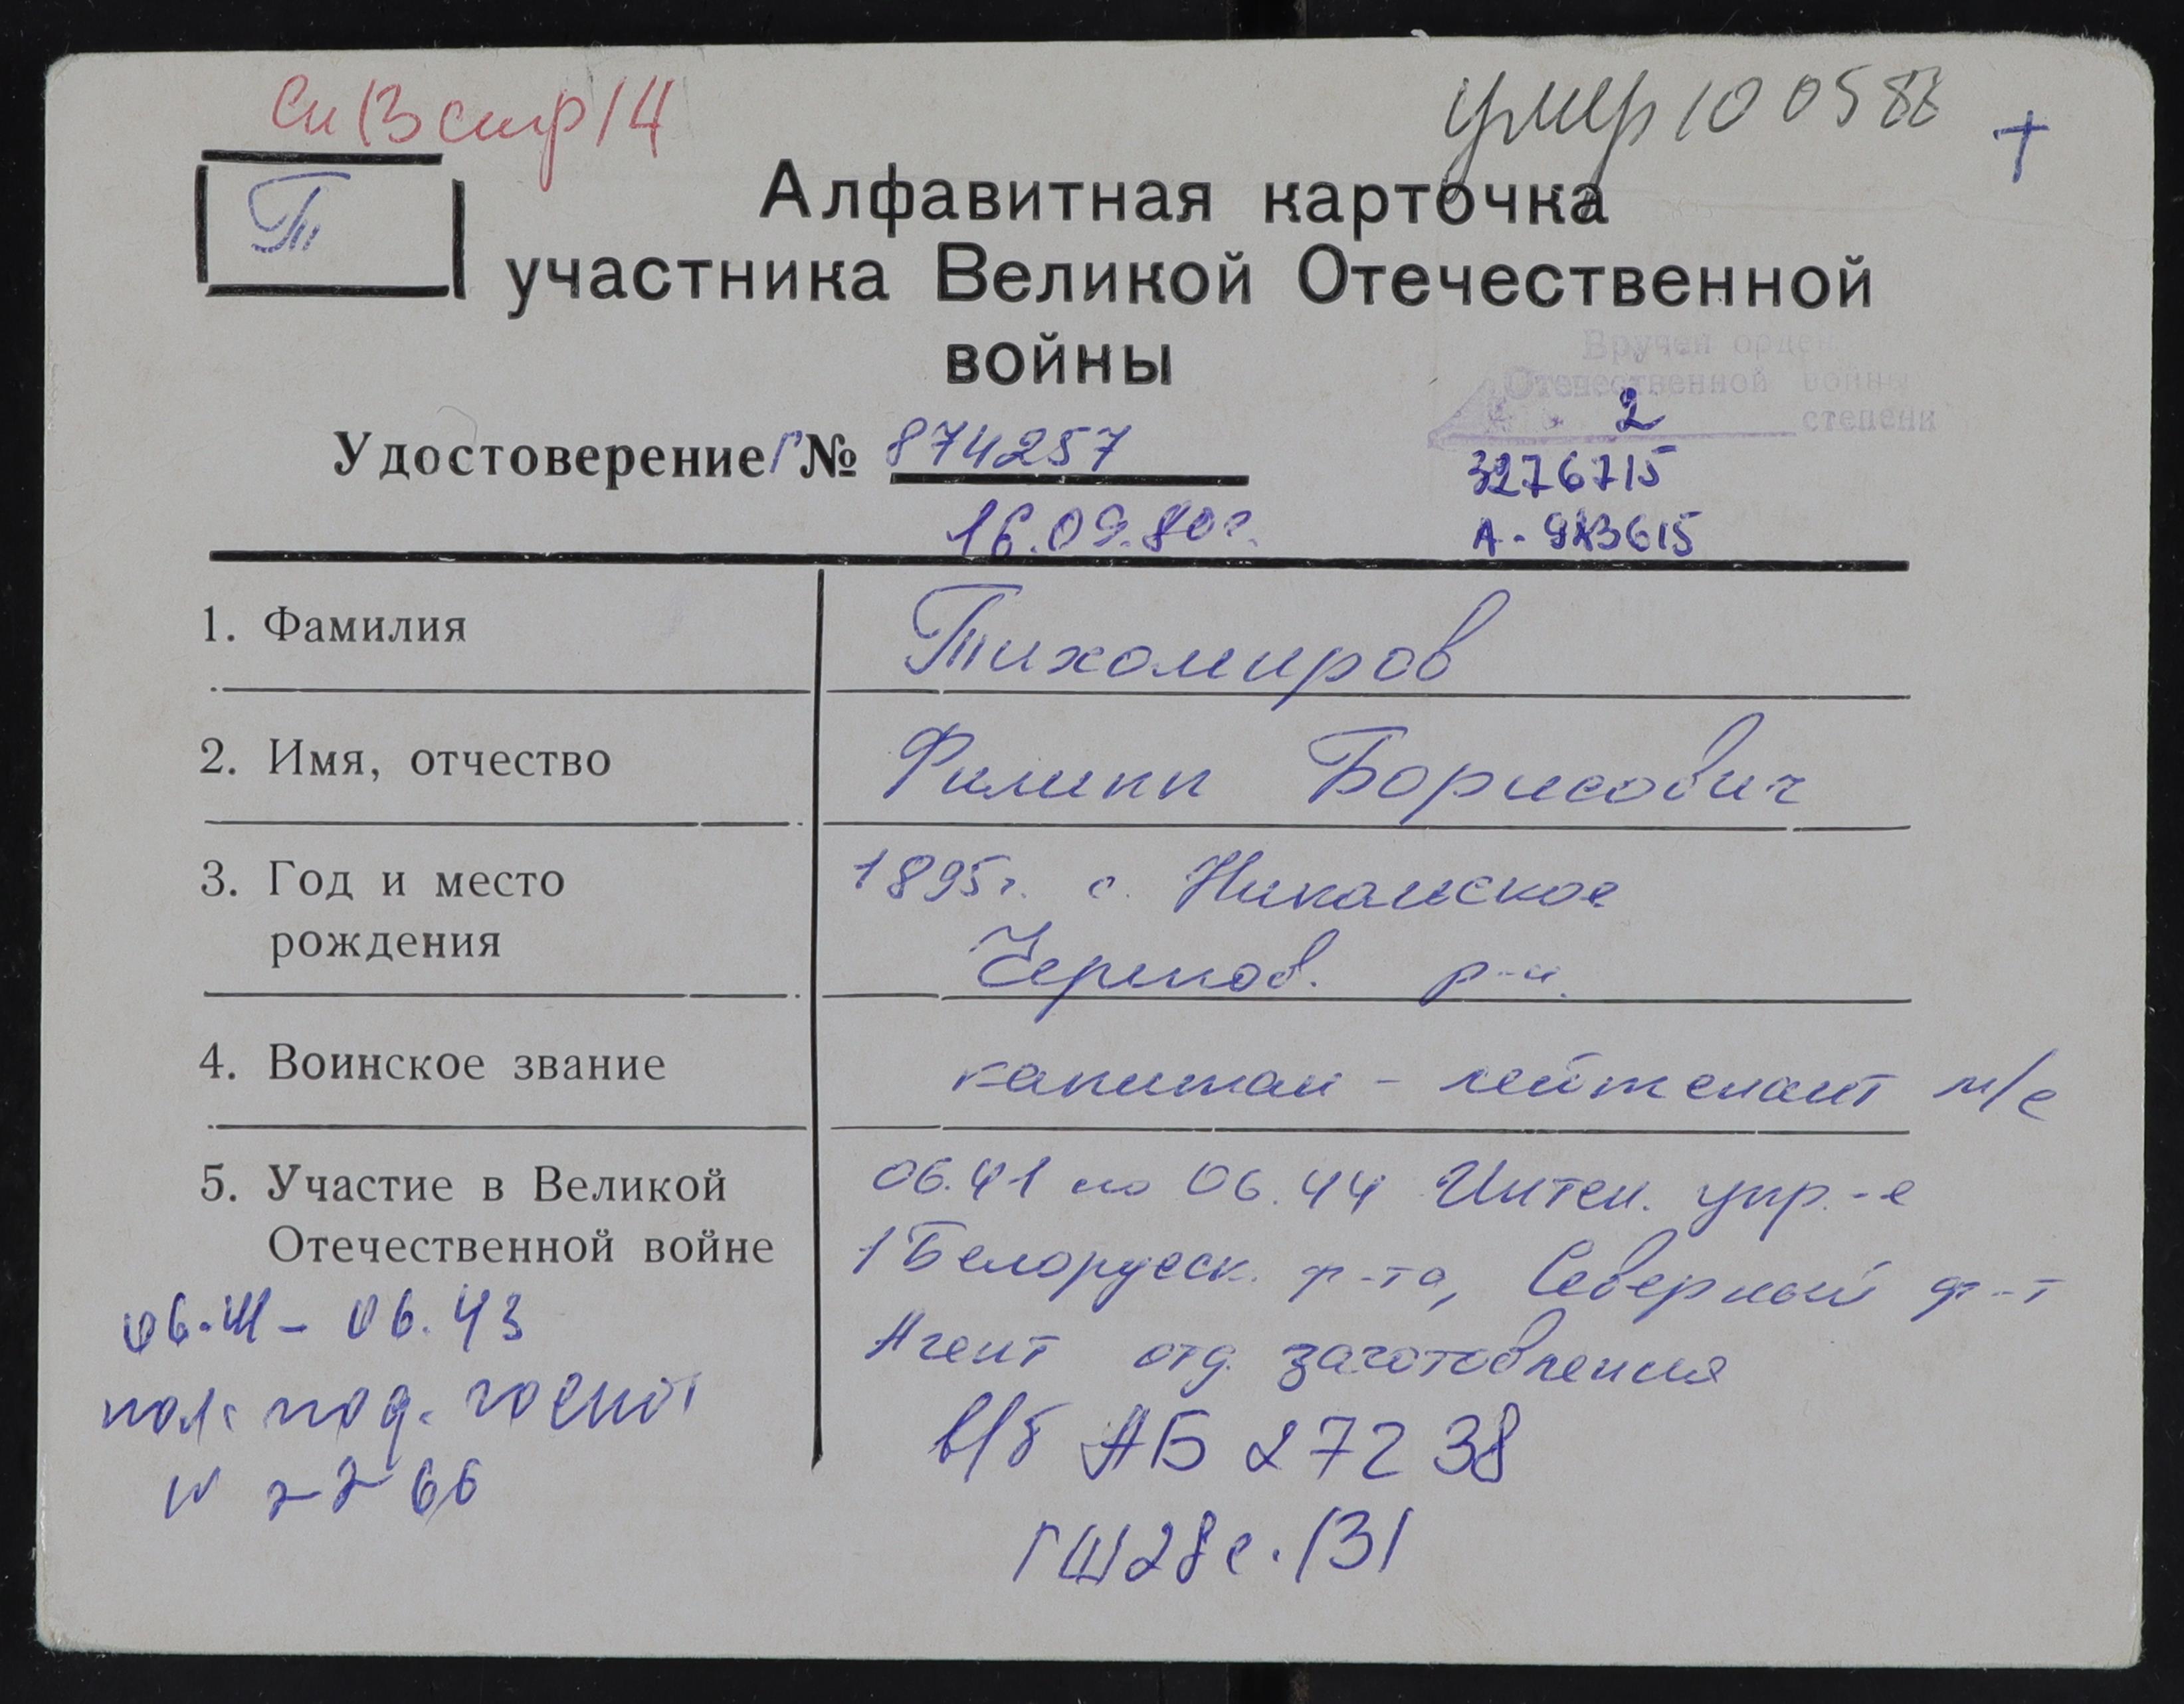 Сп 13 стр 14
умер 10 05 88
+
Т
Алфавитная карточка
участника Великой Отечественной
войны
Вручен орден
Отечественной войны
2 степени
Удостоверение Г № 874257
3276715
16.09.80г.
А-943615
1. Фамилия Тихомиров
2. Имя, отчество Филипп Борисович
3. Год и место 1895г. с. Никольское
рождения Черепов. р-н.
4. Воинское звание капитан-лейтенант м/с
5. Участие в Великой 06.41 по 06.44 Интен. упр.-е
Отечественной войне 1 Белорусск. ф-та, Северный ф-т
06.41 - 06.43
Агент отд. заготовления
пол. под. госпит
в/б АБ 27238
N 2266
ГШ 28 с. 131